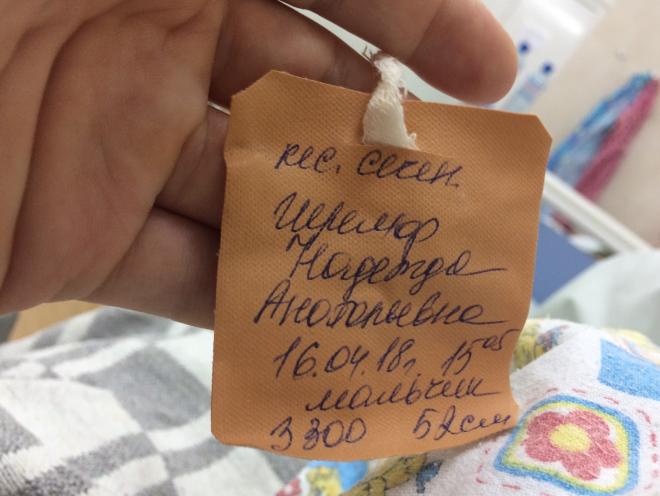 кес. сечен.
Надежда
Анатольевна
16.04.18г. 15 05
мальчик
3300 52см